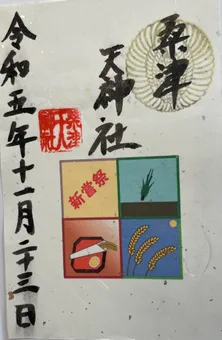 粟津
天神社
令和五年十一月二十三日
新嘗祭